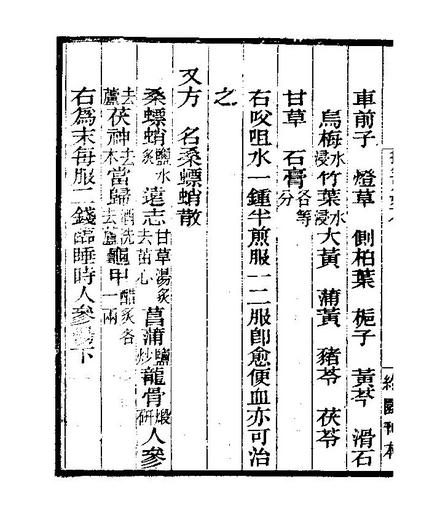 車前子 燈草 側柏葉 梔子 黃芩 滑石
烏梅水浸竹葉水浸大黃 蒲黃 豬苓 茯苓
甘草 石膏各等分
右咬咀水一鍾半煎服一二服卽愈便血亦可治
之
又方 名桑螵蛸散
桑螵蛸鹽水炙 遠志甘草湯炙去苗心 菖蒲鹽炒龍骨煅研人參
去蘆茯神去木當歸酒洗去蘆龜甲酷炙各一兩
右爲末每服二錢臨睡時人參湯下